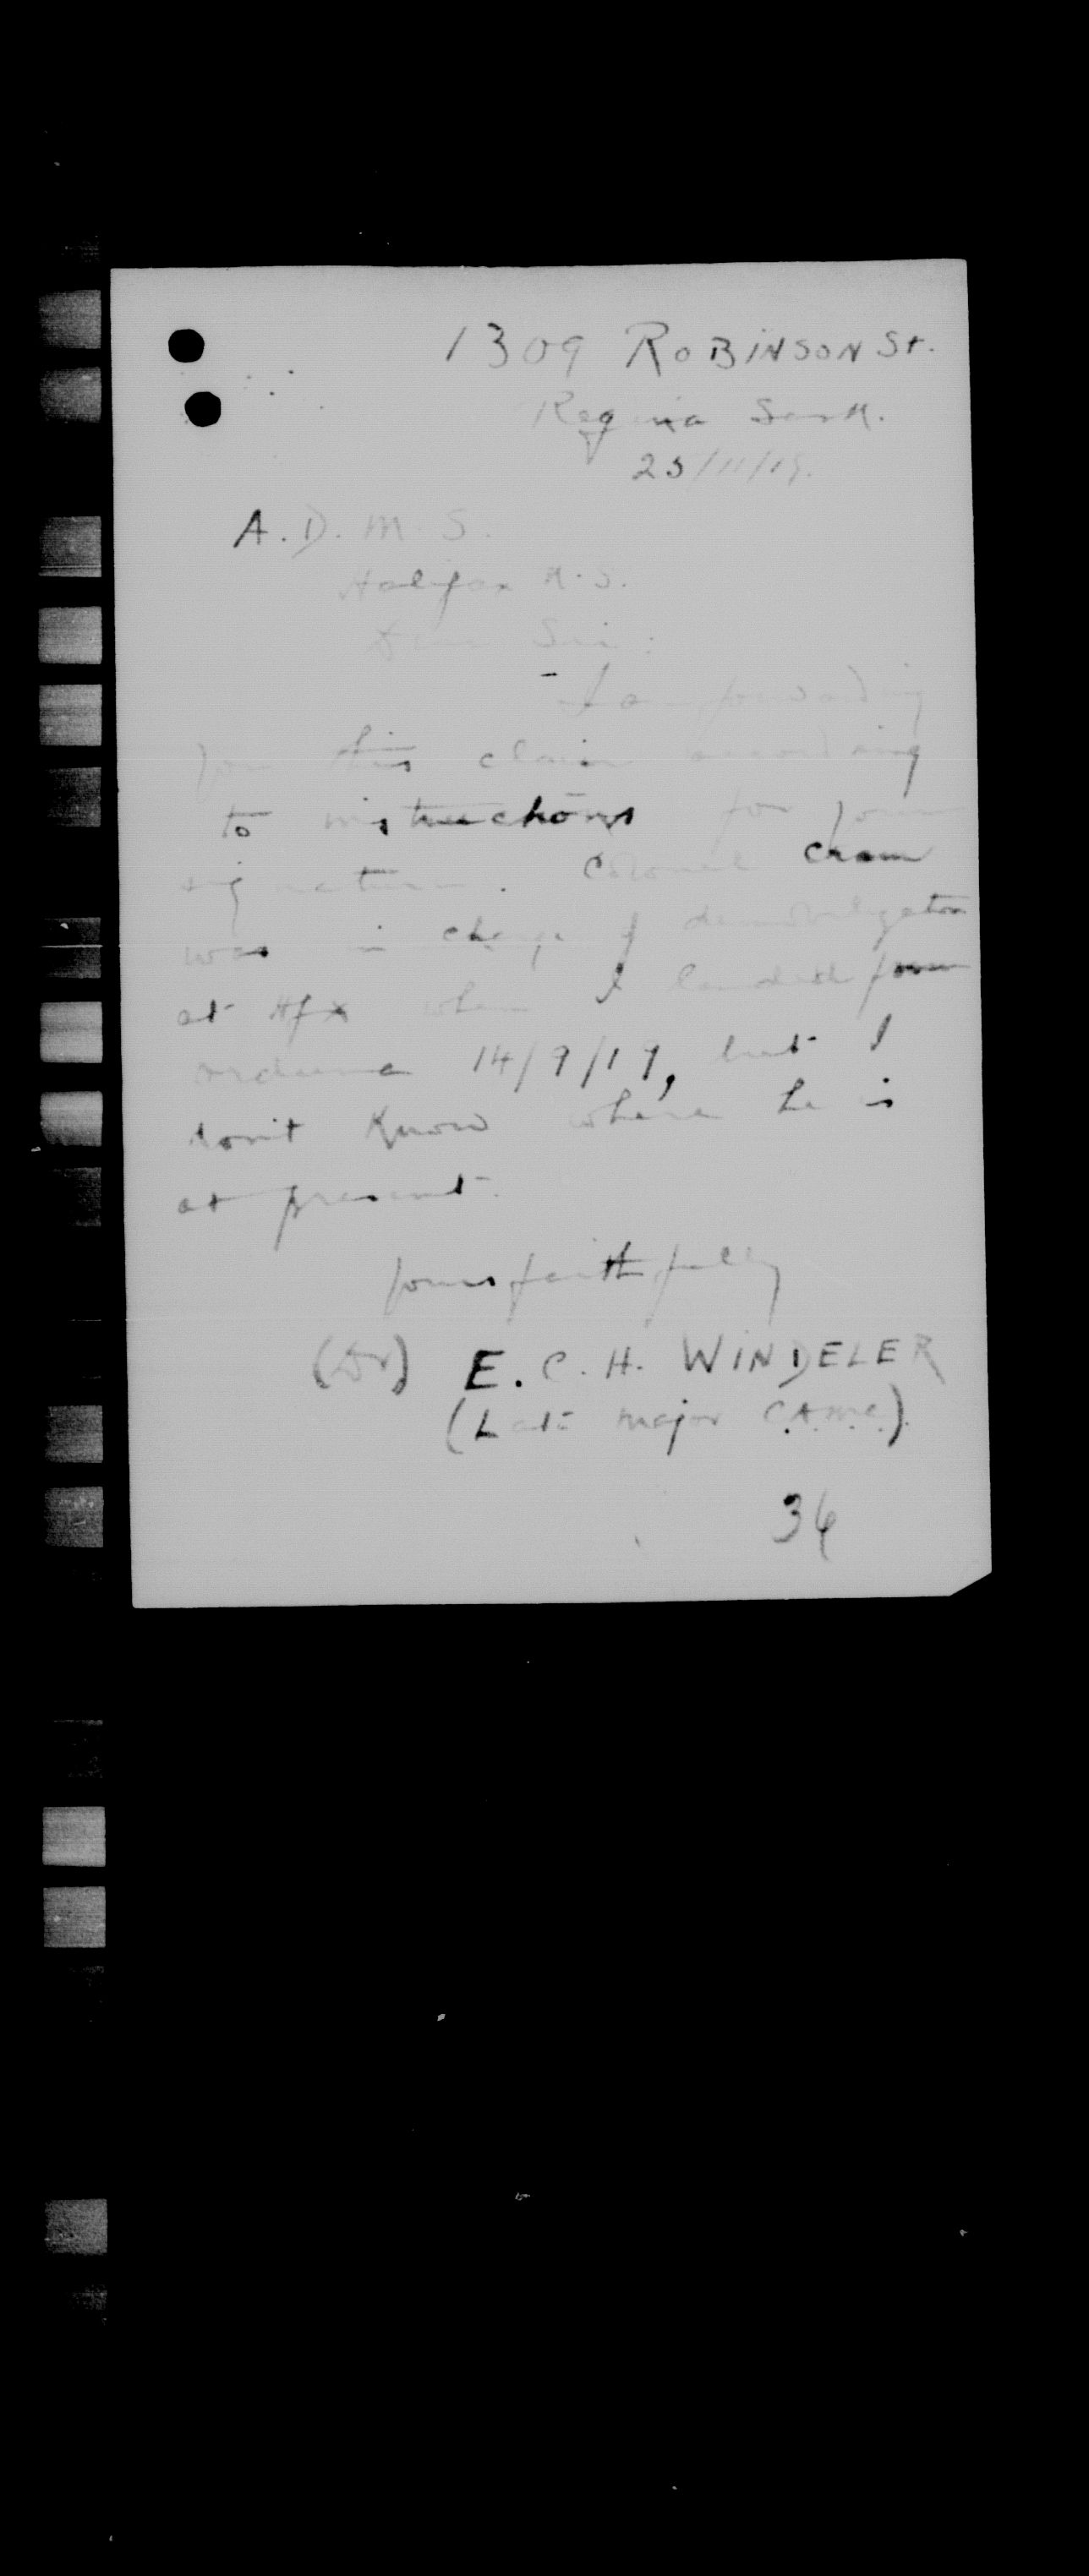 1309 ROBINSON St.
Regina Sask.
25/11/19.
A.D.M.S.
Halifax N.S.
Dear Sir:
I am forwarding
you this claim according
to instructions for your
signature. Colonel
was in charge of demobilization
at Hfx when I landed from
14/9/19, but I
don't know where he is
at present.
Yours faithfully
(Dr) E.C.H. WINDELER
(Late Major C.A.M.C.).
36